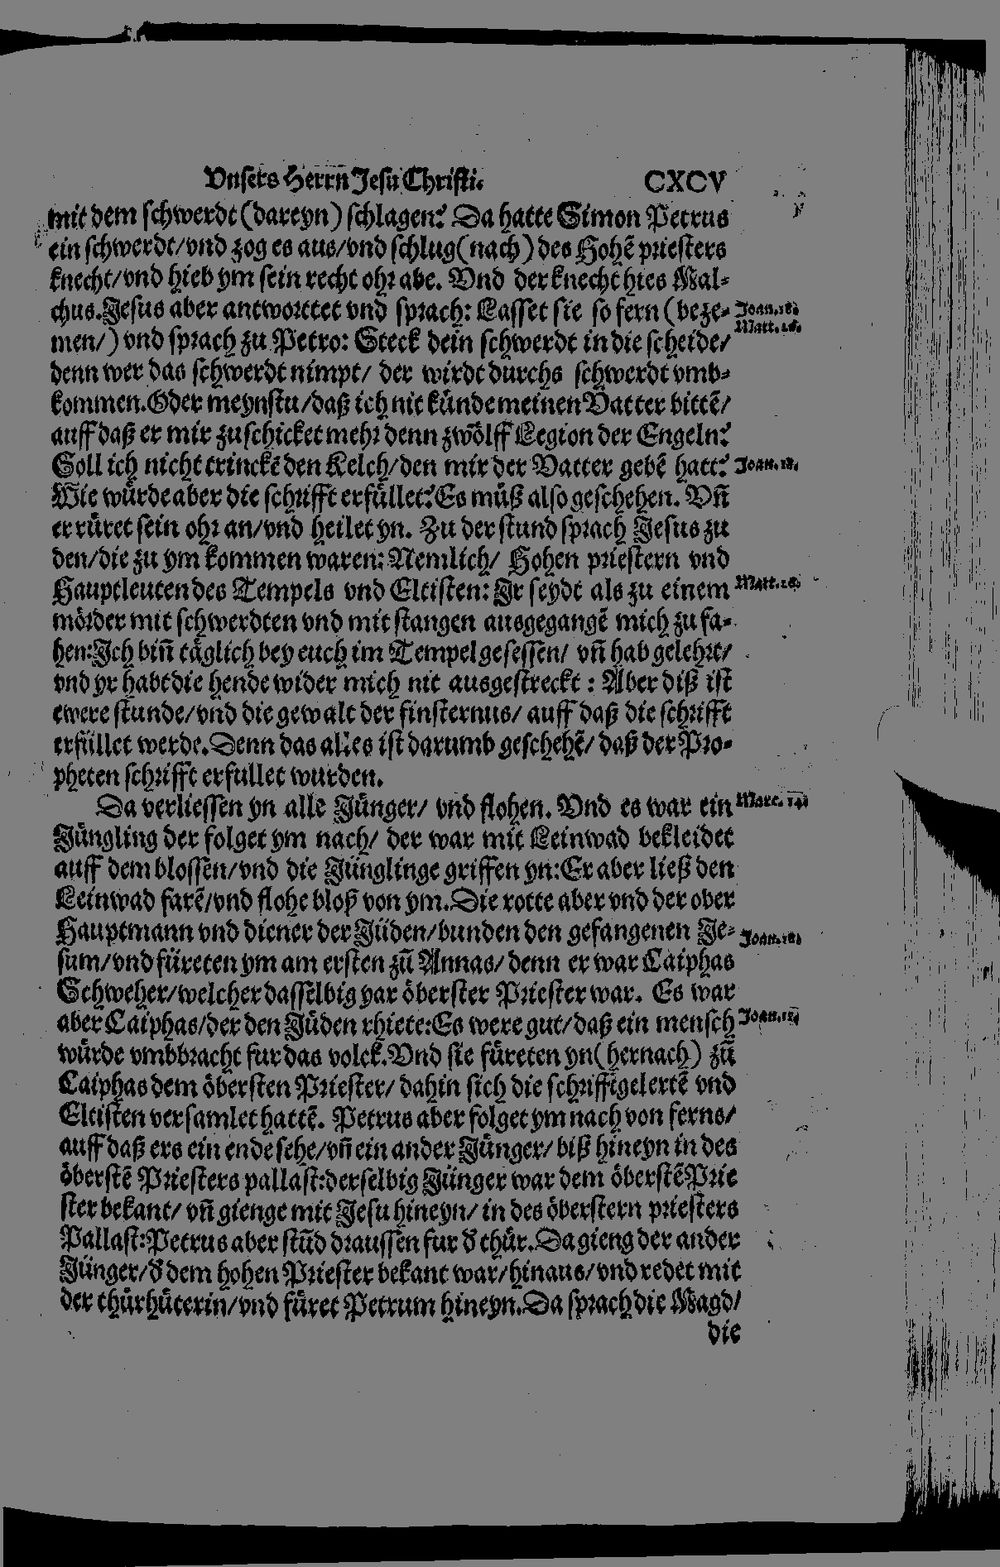 Vnsers Herrn̄ Jesu Christi. CXCV
mit dem schwerdt (dareyn) schlagen? Da hatte Simon Petrus
ein schwerdt/vnd zog es aus/vnd schlug (nach) des Hohē priesters
knecht/vnd hieb ym sein recht ohr abe. Vnd der knecht hies Mal-
chus. Jesus aber antworttet vnd sprach: Lasset sie so fern (beze- Joan.18.
men/) vnd sprach zu Petro: Steck dein schwerdt in die scheide/ Matt.26.
denn wer das schwerdt nimpt/ der wirdt durchs schwerdt vmb-
kommen. Oder meynstu/daß ich nit künde meinen Vatter bittē/
auff daß er mir zuschicket mehr denn zwölff Legion der Engeln?
Soll ich nicht trinckē den Kelch/den mir der Vatter gebē hatt? Joan.18.
Wie würde aber die schrifft erfüllet? Es müß also geschehen. Vñ
er rüret sein ohr an/vnd heilet yn. Zu der stund sprach Jesus zu
den/die zu ym kommen waren: Nemlich/ Hohen priestern vnd
Hauptleuten des Tempels vnd Eltisten: Ir seydt als zu einem Matt.26.
mörder mit schwerdten vnd mit stangen ausgegangē mich zu fa-
hen: Ich biñ täglich bey euch im Tempel gesessen/ vñ hab gelehrt/
vnd yr habt die hende wider mich nit ausgestreckt: Aber diß ist
ewere stunde/vnd die gewalt der finsternus/ auff daß die schrifft
erfüllet werde. Denn das alles ist darumb geschehē/ daß der Pro-
pheten schrifft erfullet wurden.
Da verliessen yn alle Jünger/ vnd flohen. Vnd es war ein Marc.14.
Jüngling der folget ym nach/ der war mit Leinwad bekleidet
auff dem blossen/vnd die Jünglinge griffen yn: Er aber ließ den
Leinwad farē/vnd flohe bloß von ym. Die rotte aber vnd der ober
Hauptmann vnd diener der Jüden/bunden den gefangenen Je- Joan.18.
sum/vnd füreten ym am ersten zū Annas/ denn er war Caiphas
Schweher/welcher dasselbig yar öberster Priester war. Es war
aber Caiphas/der den Jüden rhiete: Es were gut/daß ein mensch
würde vmbbracht fur das volck. Vnd sie füreten yn (hernach) zū
Caiphas dem öbersten Priester/ dahin sich die schrifftgelertē vnd
Eltisten versamlet hattē. Petrus aber folget ym nach von ferns/
auff daß ers ein ende sehe/vñ ein ander Jünger/ biß hineyn in des
öberstē Priesters pallast: derselbig Jünger war dem öberstē Prie
ster bekant/ vñ gienge mit Jesu hineyn/ in des öberstern priesters
Pallast: Petrus aber stūd draussen fur d̕ thür. Da gieng der ander
Jünger/d̕ dem hohen Priester bekant war/hinaus/vnd redet mit
der thürhüterin/vnd füret Petrum hineyn. Da sprach die Magd/
die